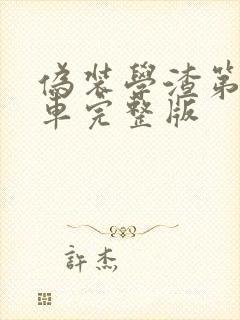 偽裝學渣第
車完整版
許杰